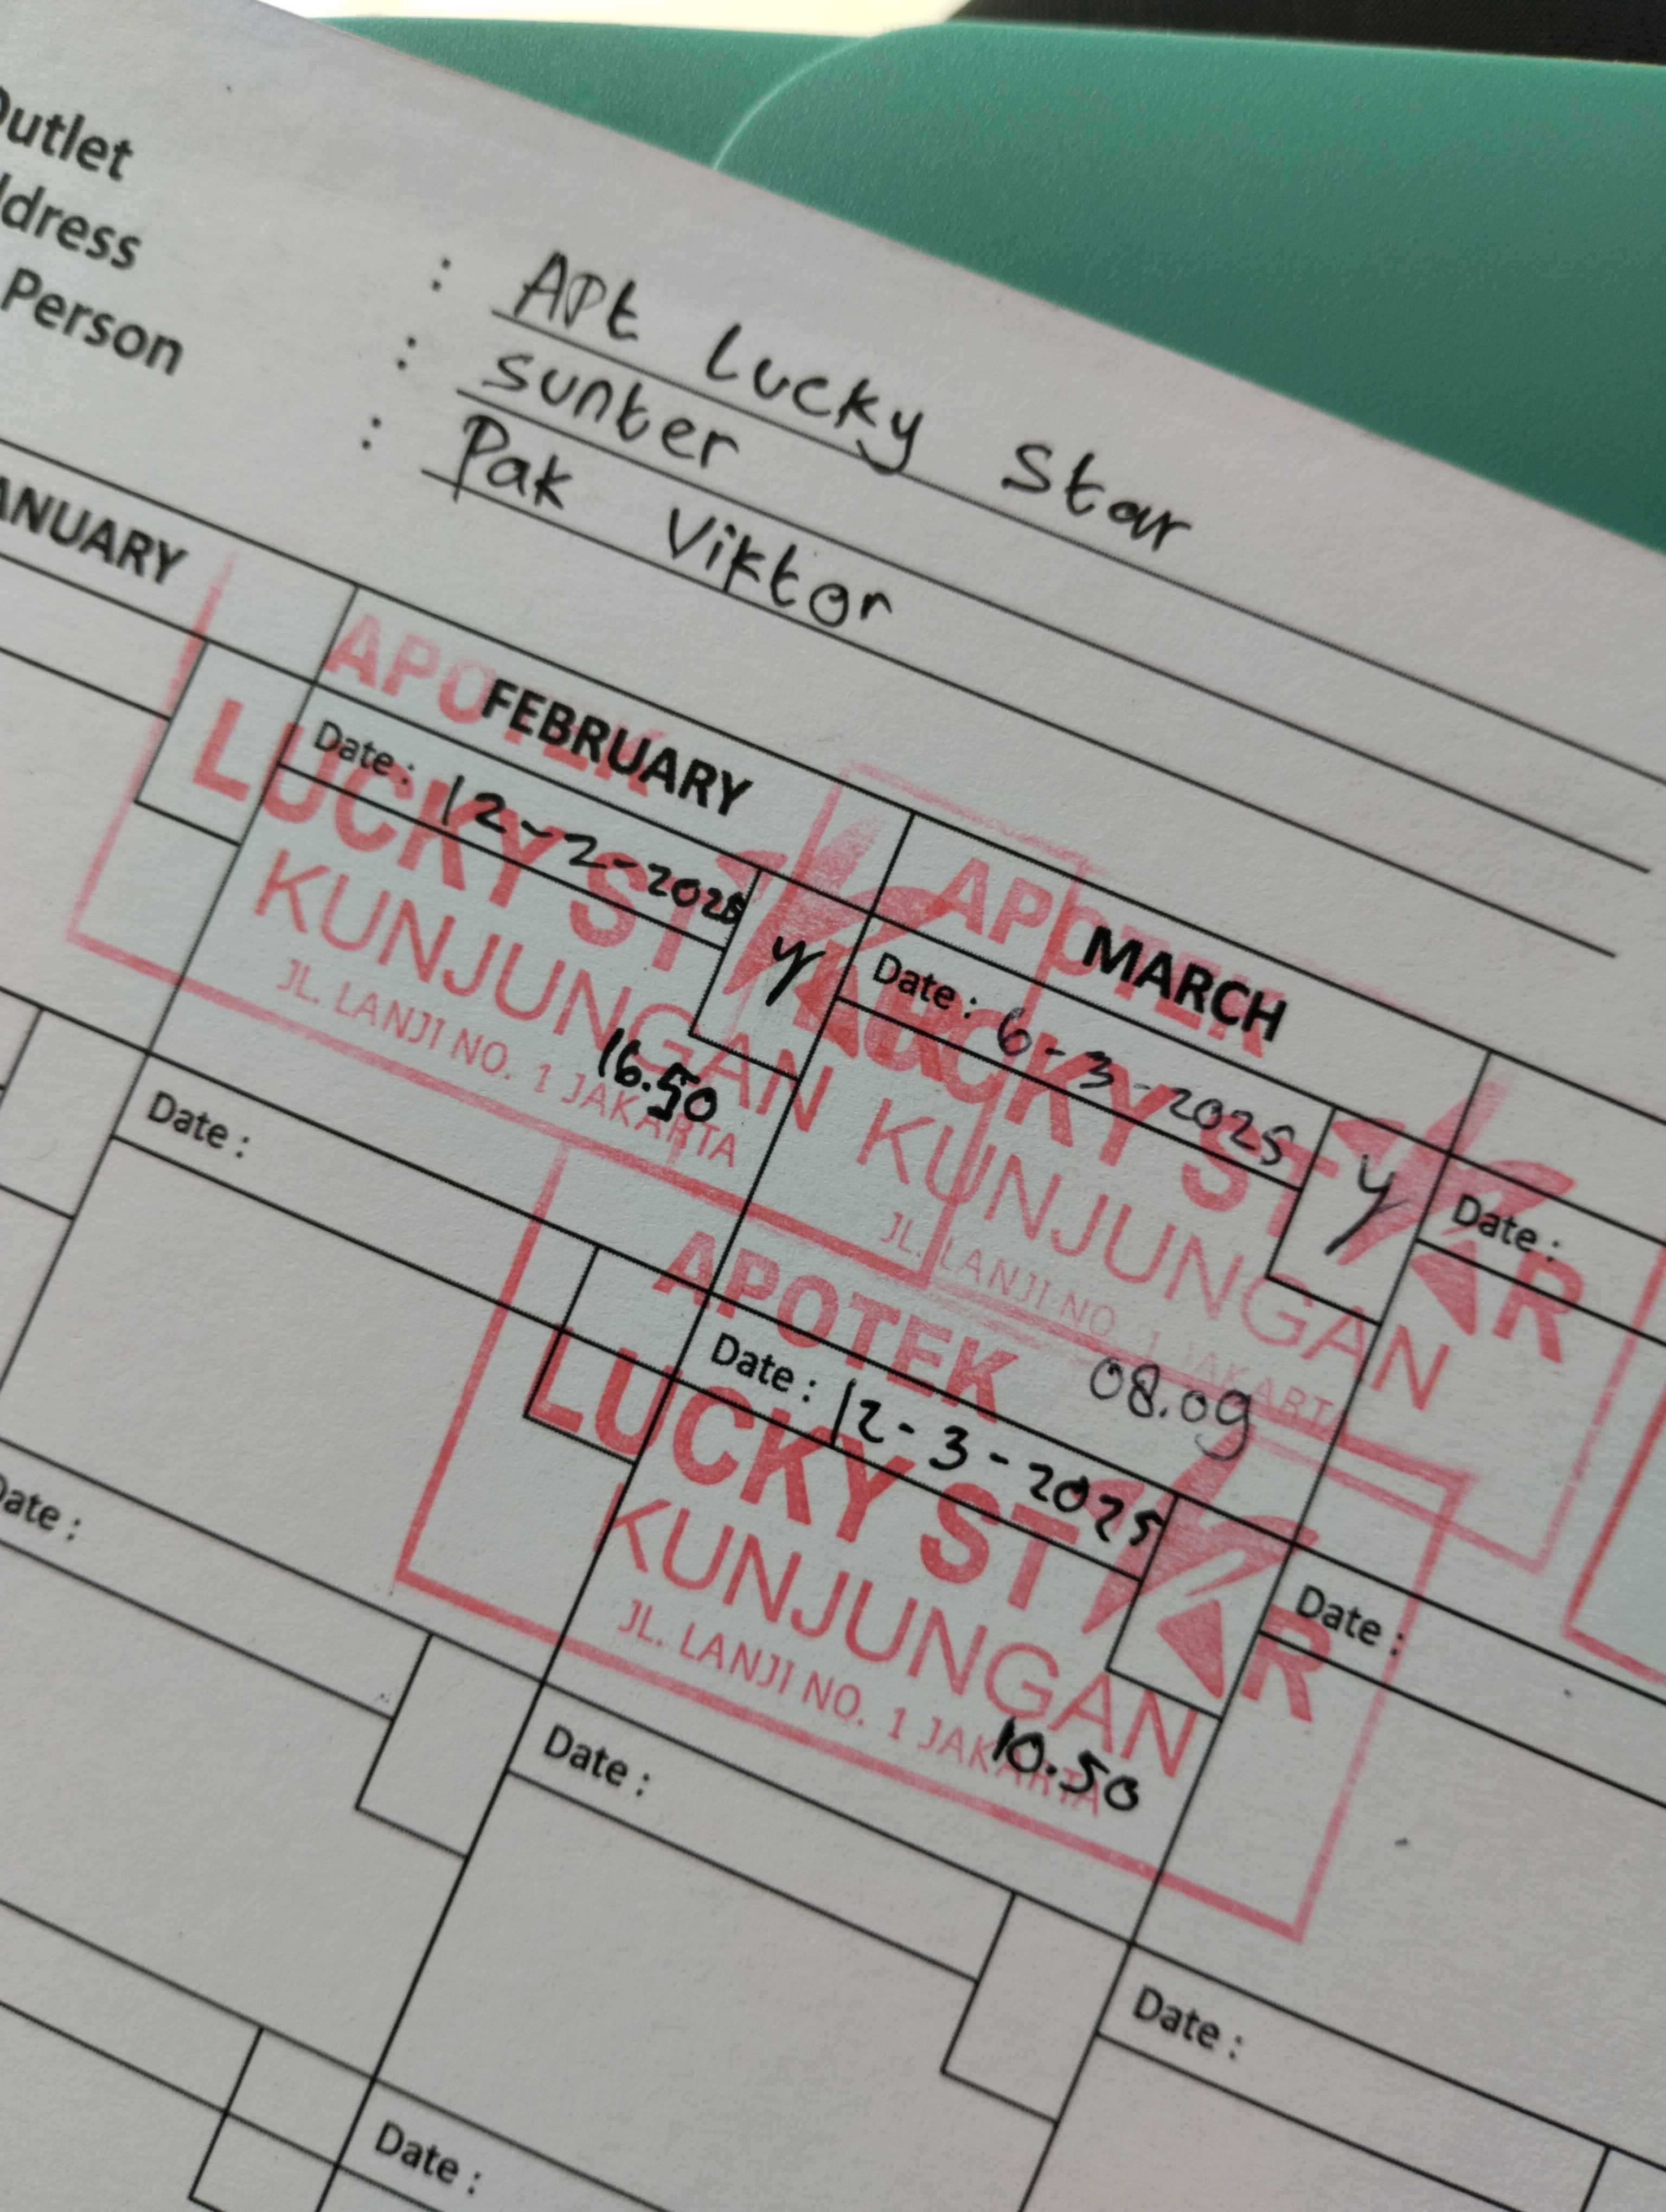 Outlet : Apt Lucky Star
Address : Sunter
Person : Pak Viktor
JANUARY
FEBRUARY
MARCH
APOTEK
LUCKY STAR
KUNJUNGAN
JL. LANJI NO. 1 JAKARTA
Date : 12-2-2025
y
16.50
APOTEK
LUCKY STAR
KUNJUNGAN
JL. LANJI NO. 1 JAKARTA
Date : 6-3-2025
y
08.09
Date :
Date :
APOTEK
LUCKY STAR
KUNJUNGAN
JL. LANJI NO. 1 JAKARTA
Date : 12-3-2025
10.50
Date :
Date :
Date :
Date :
Date :